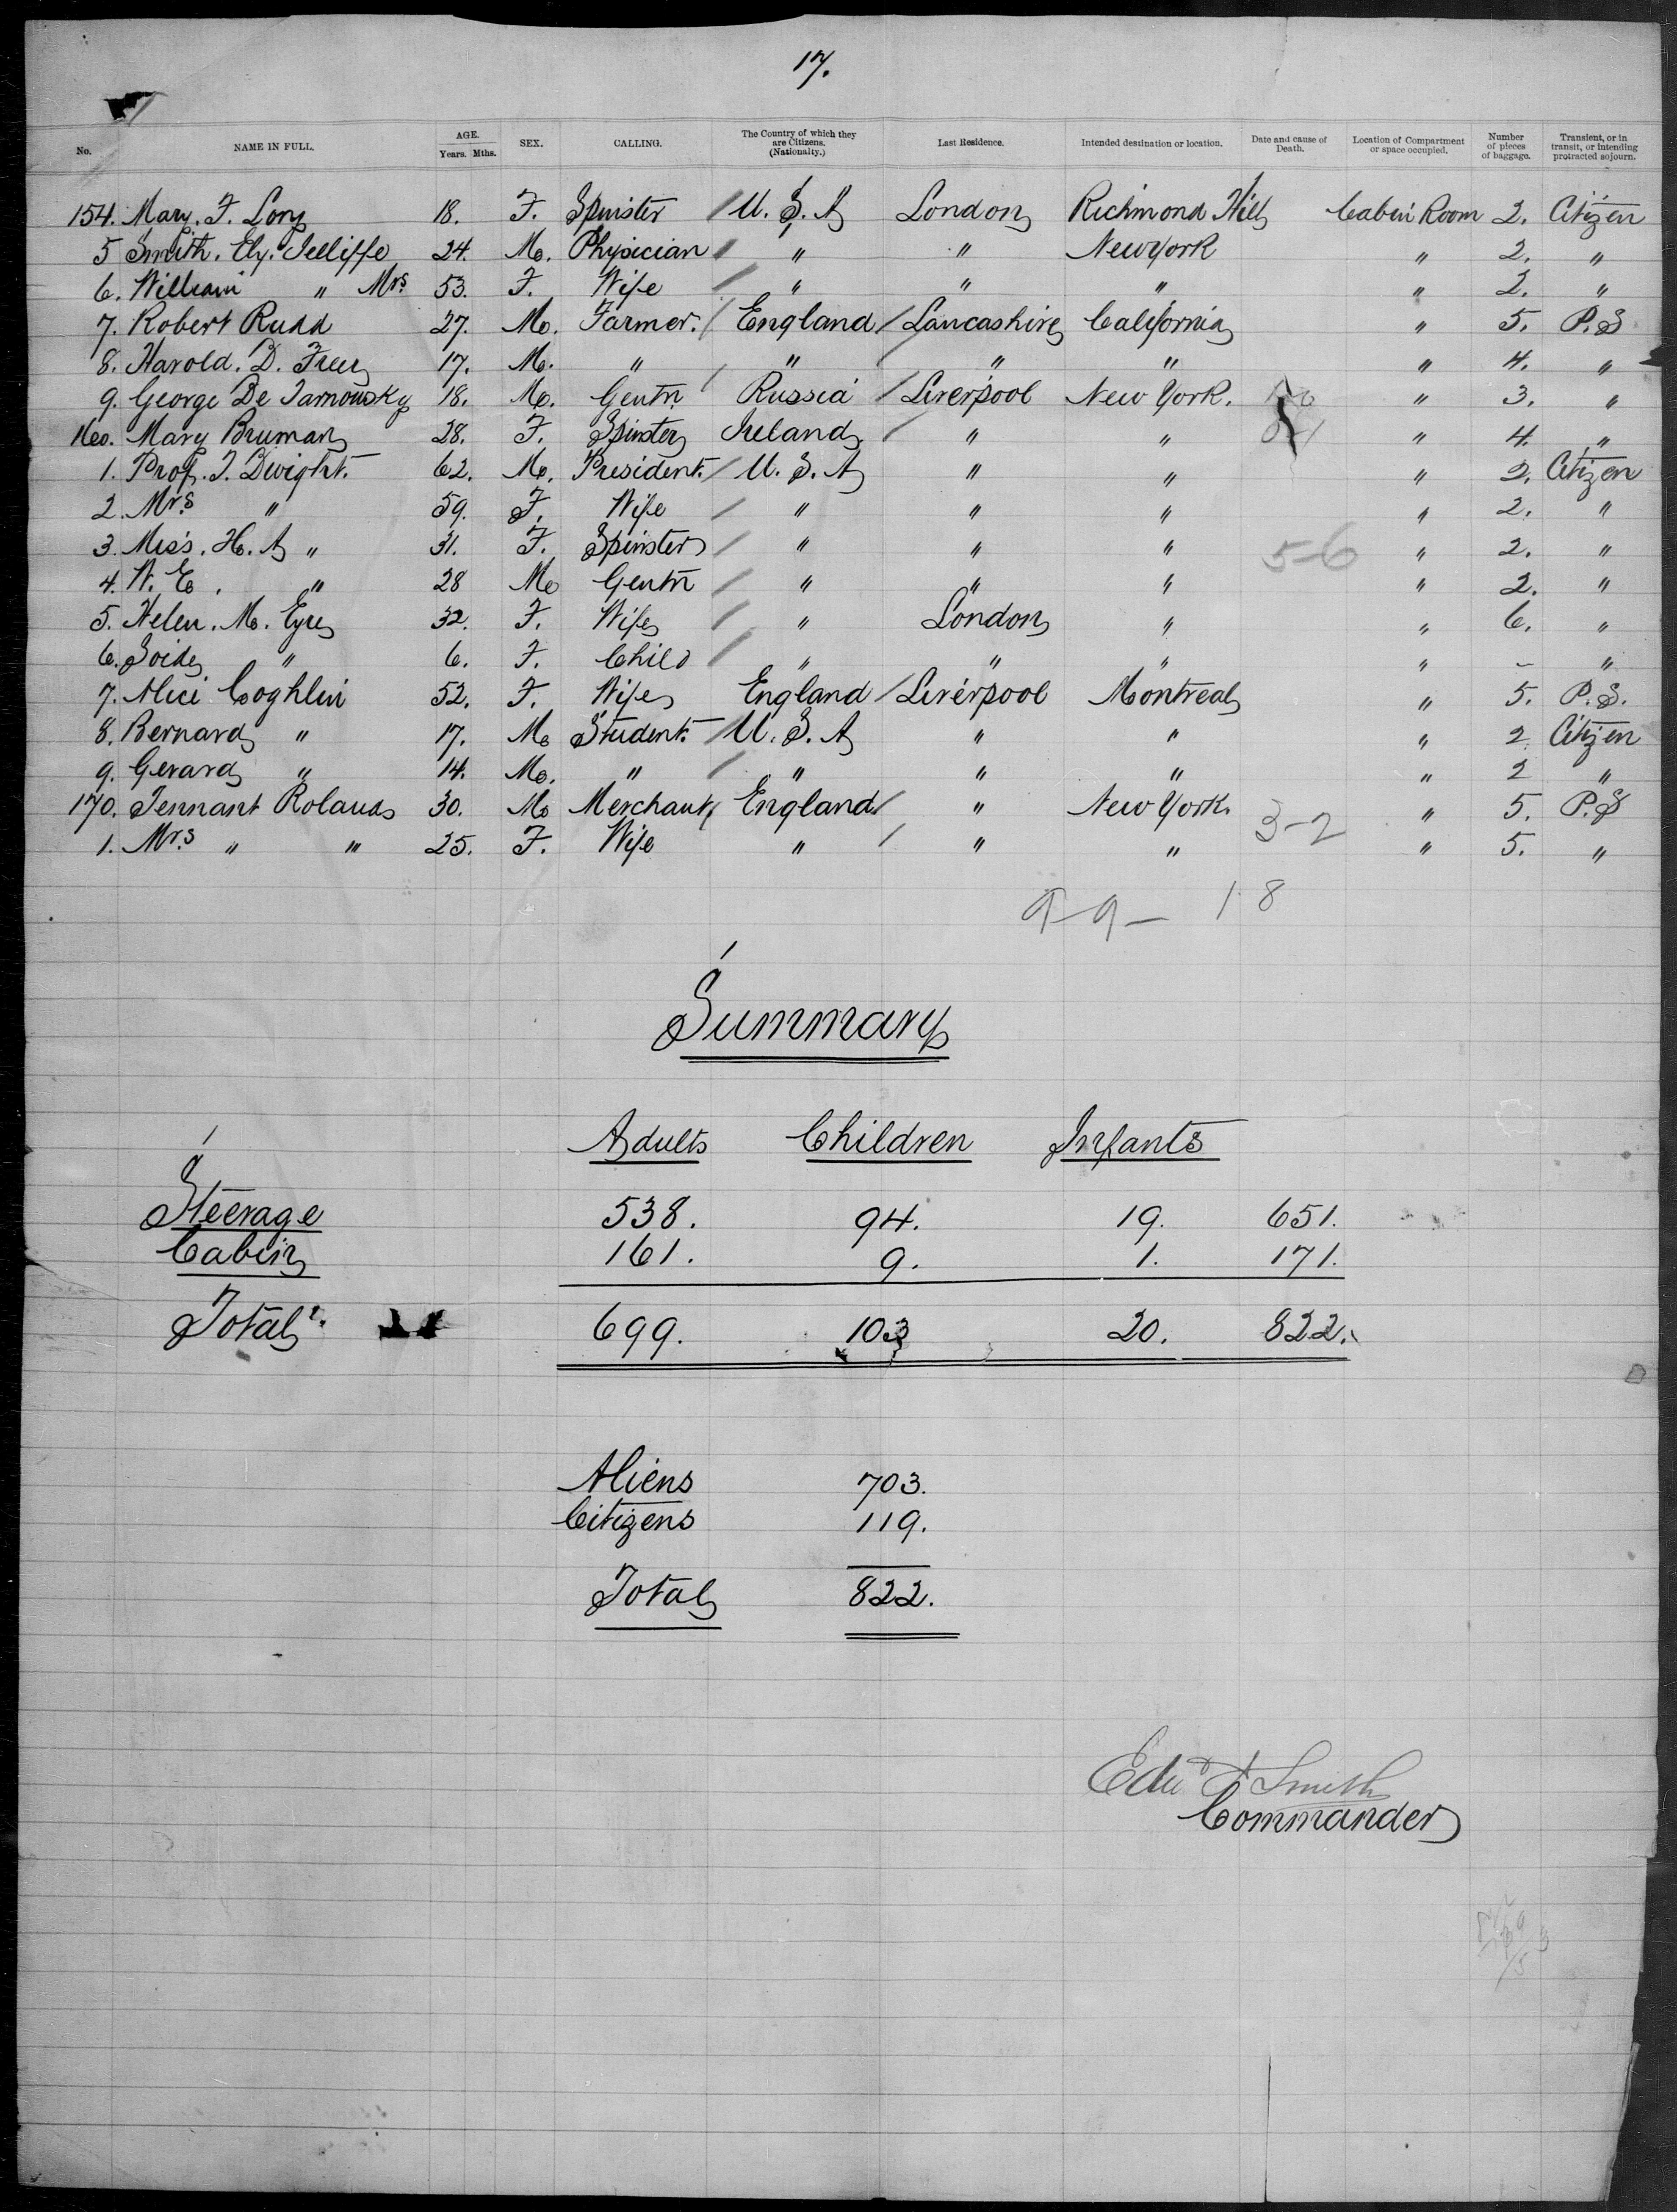 17.
No. NAME IN FULL. AGE. Years. Mths. SEX. CALLING. The Country of which they are Citizens. (Nationality.) Last Residence. Intended destination or location. Date and cause of Death. Location of Compartment or space occupied. Number of pieces of baggage. Transient, or in transit, or intending protracted sojourn.
154. Mary. F. Long 18. F. Spinster / U. S. A London Richmond Hill Cabin Room 2. Citizen
5 Smith. Ely. Jelliffe 24. M. Physician / " " New York " 2. "
6. William " Mrs. 53. F. Wife / " " " " 2. "
7. Robert Rudd 27. M. Farmer. / England / Lancashire California " 5. P.S
8. Harold. D. Freer 17. M. " " " " " 4. "
9. George De Tarnowsky 18. M. Gentn / Russia / Liverpool New York. " 3. "
160. Mary Bruman 28. F. Spinster Ireland / " " " 4. "
1. Prof. T. Dwight. 62. M. President. / U. S. A " " " 2. Citizen
2. Mrs " 59. F. Wife / " " " " 2. "
3. Miss. H. A " 31. F. Spinster / " " " 5-6 " 2. "
4. W. E. " 28 M Gentn / " " " " 2. "
5. Helen. M. Eyre 32. F. Wife / " London " " 6. "
6. " 6. F. Child / " " " " - "
7. Alice Coghlin 52. F. Wife England / Liverpool Montreal " 5. P.S.
8. Bernard " 17. M Student. / U. S. A " " " 2 Citizen
9. Gerard " 14. M. " / " " " " 2 "
170. Tennant Roland 30. M Merchant / England / " New York. 3-2 " 5. P.S
1. Mrs " " 25. F. Wife " / " " " 5. "
9-9- 18
Summary
Adults Children Infants
Steerage 538. 94. 19. 651.
Cabin 161. 9. 1. 171.
Total 699. 103 20. 822.
Aliens 703.
Citizens 119.
Total 822.
Smith
Commander